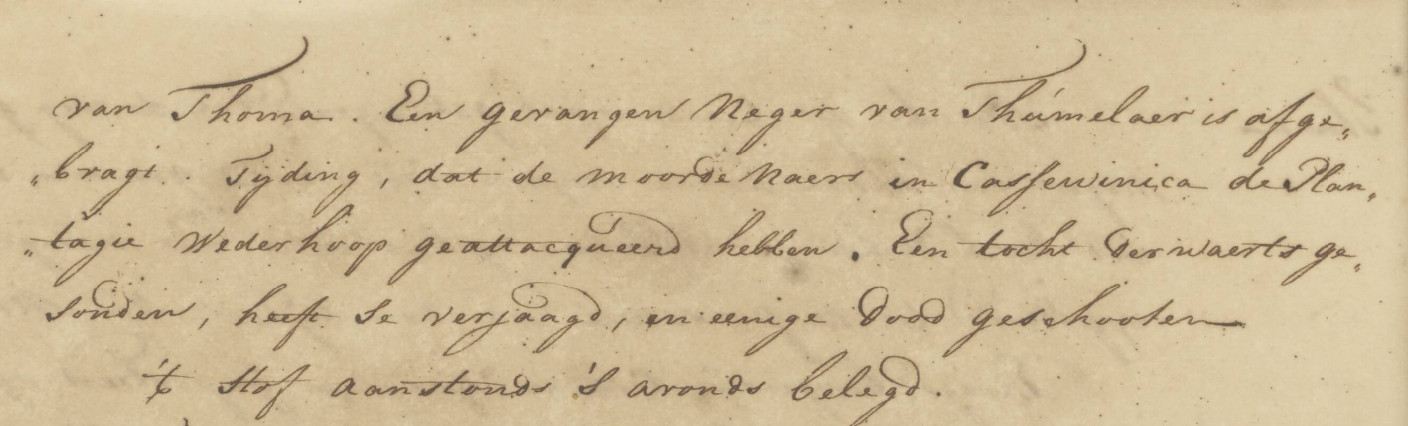 van Thoma. Een gevangen Neger van Thúmelaer is afge„
„bragt. Tijding, dat de moordenaers in Cassewinica de Plan„
„tagie Wederhoop geattacqueerd hebben. Een tocht derwaerts ge„
sonden, heeft se verjaagd, en eenige dood geschooten
't Hof aanstonds 's avonds belegd.